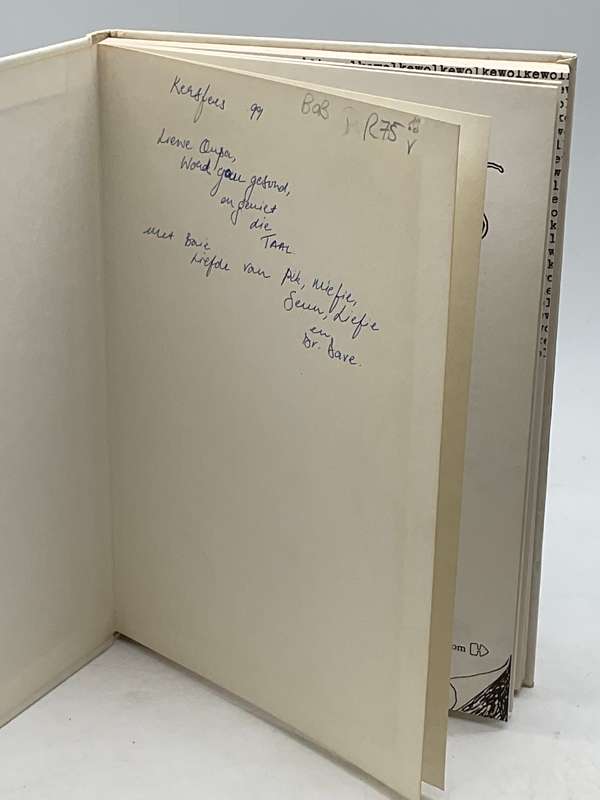 Kersfees 99
BOB R75
Liewe Oupa,
Word gou gesond,
en geniet
die
TAAL
met Baie
Liefde van Pik, Miefie,
Seun, Liefie
en
Dr. Dave.
lkewolkewolkewolkewolkewol
om